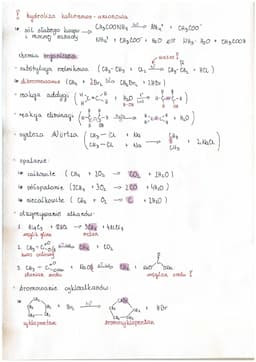 ! hydroliza kationowo-anionowa
→ sól słabego kwasu i mocnej zasady
CH₃COONH₄ → NH₄⁺ + CH₃COO⁻
NH₄⁺ + CH₃COO⁻ + H₂O ⇌ NH₃·H₂O + CH₃COOH
chemia organiczna
- substytucja rodnikowa (CH₃-CH₃ + Cl₂ → CH₃-CH₂-Cl + HCl)
→ bromowanie (CH₄ + 2Br₂ → CH₂Br₂ + 2HBr)
- reakcja addycji
- reakcja eliminacji
- synteza Würtza
CH₃-Cl + Na
CH₃-Cl + Na
→ CH₃ CH₃ + 2NaCl
- spalanie:
→ całkowite (CH₄ + 2O₂ → CO₂ + 2H₂O)
→ półspalanie (2CH₄ + 3O₂ → 2CO + 4H₂O)
→ niecałkowite (CH₄ + O₂ → C + 2H₂O)
- otrzymywanie alkanów:
1. Al₄C₃ + 12HCl → 3CH₄ + 4AlCl₃
węglik glinu metan
2. CH₃-C CH₄ + CO₂
kwas octowy
3. CH₃-C + NaOH CH₄ +
węglan sodu
- bromowanie cykloalkanów:
+ Br₂ → + HBr
cyklopentan bromocyklopentan